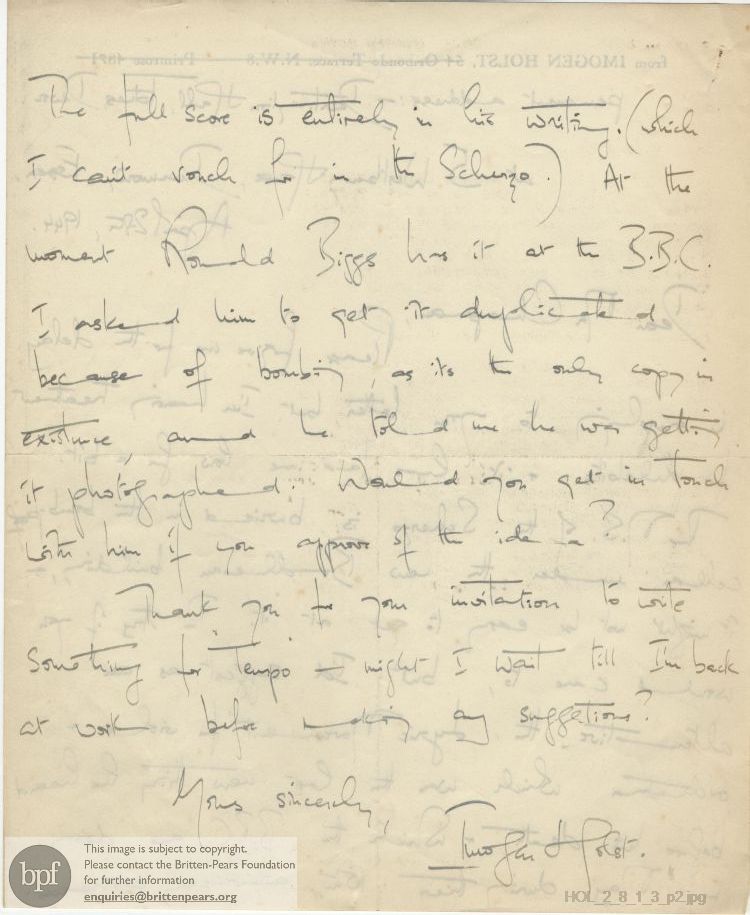 The full score is entirely in his writing. (which
I can't vouch for in the Scherzo.) At the
moment Ronald Biggs has it at the B.B.C.
I asked him to get it duplicated
because of bombing, as its the only copy in
existence, and he told me he was getting
it photographed. Would you get in touch
with him if you approve of the idea?
Thank you for your invitation to write
something for 'Tempo' – might I wait till I'm back
at work before making any suggestions?
Yours sincerely,
Imogen Holst.
bpf
This image is subject to copyright.
Please contact the Britten-Pears Foundation
for further information
enquiries@brittenpears.org
HOL_2_8_1_3_p2.jpg